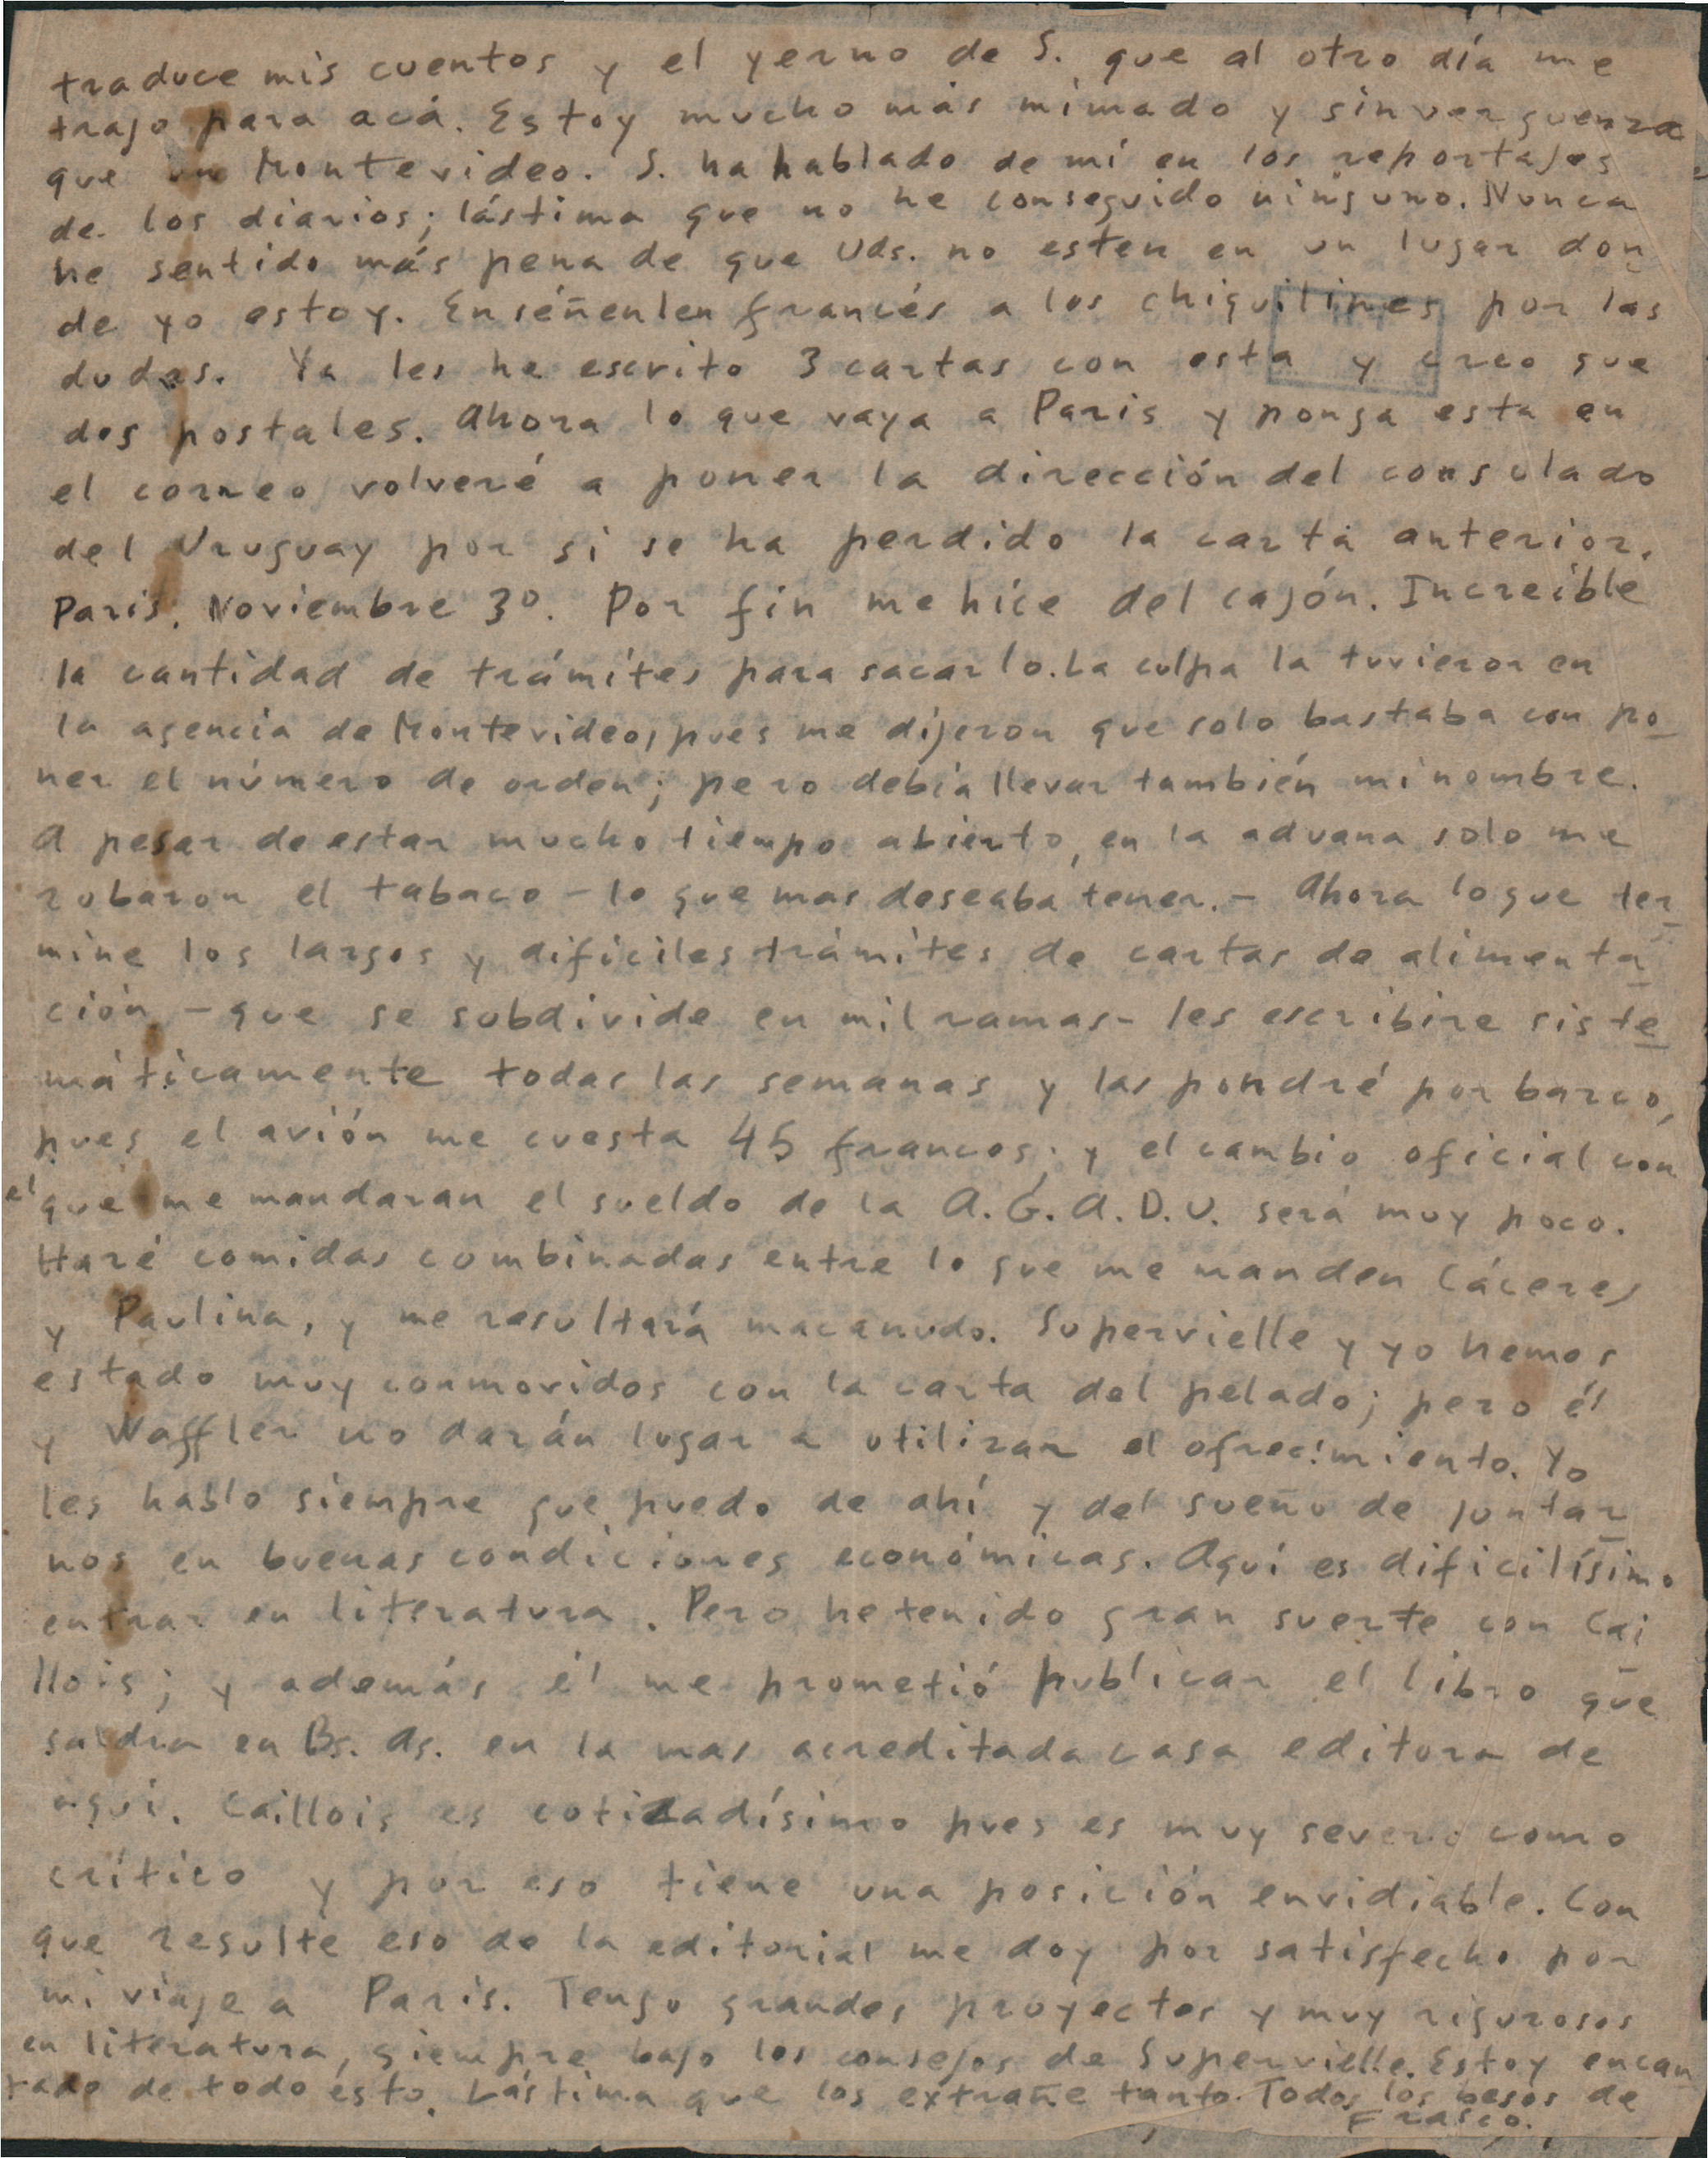 traduce mis cuentos y el yerno de S. que al otro día me
trajo para acá. Estoy mucho más mimado y sinverguenza
que en Montevideo. S. ha hablado de mí en los reportajes
de los diarios; lástima que no he conseguido ninguno. Nunca
he sentido más pena de que Uds. no esten en un lugar don
de yo estoy. Enséñenlen francés a los chiquilines por las
dudas. Ya les he escrito 3 cartas con esta y creo que
dos postales. Ahora lo que vaya a Paris y ponga esta en
el correo volveré a poner la dirección del consulado
del Uruguay por si se ha perdido la carta anterior.
Paris. Noviembre 30. Por fin me hice del cajón. Increible
la cantidad de trámites para sacarlo. La culpa la tuvieron en
la agencia de Montevideo, pues me dijeron que solo bastaba con po
ner el número de orden; pero debía llevar también mi nombre.
A pesar de estar mucho tiempo abierto, en la aduana solo me
robaron el tabaco - lo que mas deseaba tener. - Ahora lo que ter
mine los largos y dificiles trámites de cartas de alimenta
ción - que se subdivide en mil ramas - les escribire siste
máticamente todas las semanas y las pondré por barco,
pues el avión me cuesta 45 francos; y el cambio oficial con
el que me mandaran el sueldo de la A.G.A.D.U. será muy poco.
Haré comidas combinadas entre lo que me manden Cáceres
y Paulina, y me resultará macanudo. Supervielle y yo hemos
estado muy conmovidos con la carta del pelado; pero él
y Waffler no darán lugar a utilizar el ofrecimiento. Yo
les hablo siempre que puedo de ahí y del sueño de juntar
nos en buenas condiciones económicas. Aquí es dificilísimo
entrar en literatura. Pero he tenido gran suerte con Cai
llois; y además él me prometió publicar el libro que
saldra en Bs. As. en la mas acreditada casa editora de
aquí. Caillois es cotizadísimo pues es muy severo como
crítico y por eso tiene una posición envidiable. Con
que resulte eso de la editorial me doy por satisfecho por
mi viaje a Paris. Tengo grandes proyectos y muy rigurosos
en literatura, siempre bajo los consejos de Supervielle. Estoy encan
tado de todo ésto. Lástima que los extrañe tanto. Todos los besos de
Frasco.